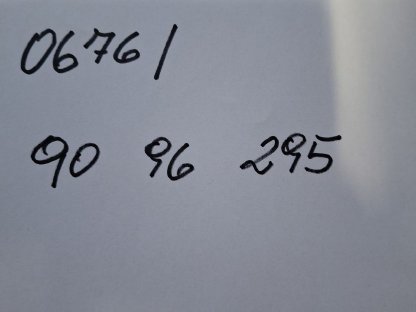 0676/
90 96 295